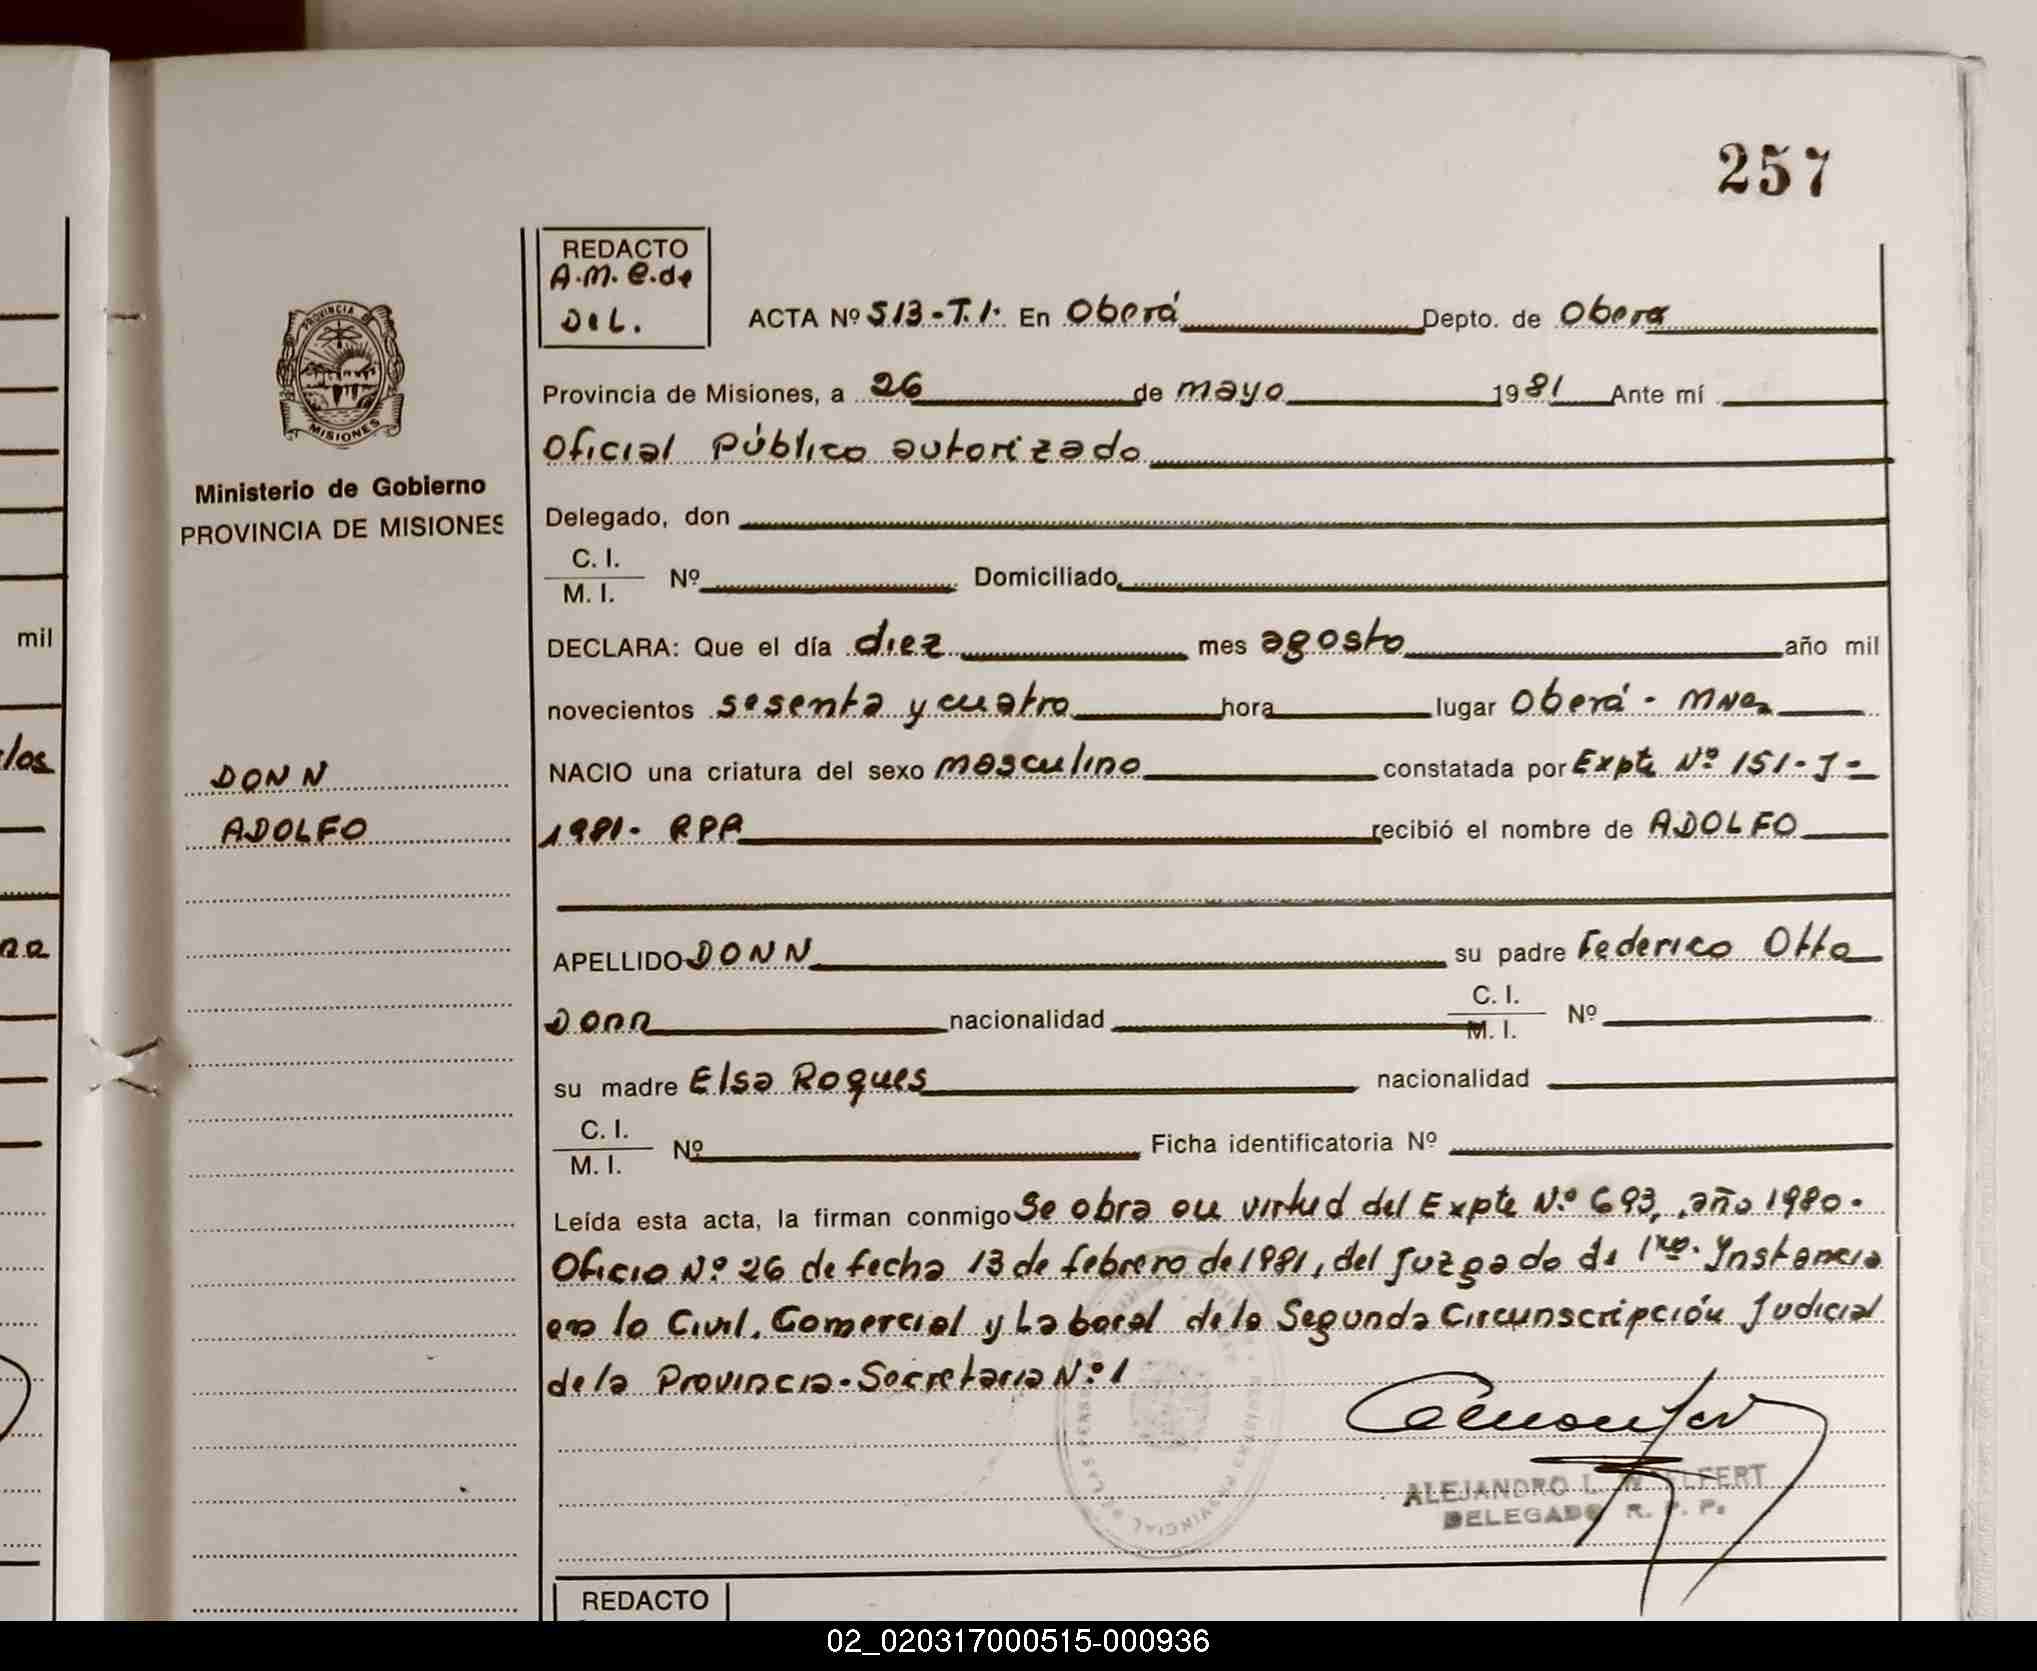 257
REDACTO
A.M.C.de
DEL.
ACTA Nº 513-T.I. En Oberá Depto. de Oberá
Provincia de Misiones, a 26 de mayo 1981 Ante mí
Oficial Público autorizado
Delegado, don
C. I.
M. I.
Nº Domiciliado
DECLARA: Que el día diez mes agosto año mil
novecientos sesenta y cuatro hora lugar Oberá - Mnes
NACIO una criatura del sexo masculino constatada por Expte Nº 151-J-
1981- RPP recibió el nombre de ADOLFO
APELLIDO DONN su padre Federico Otto
Donn nacionalidad C. I. Nº
M. I.
su madre Elsa Roques nacionalidad
C. I.
M. I.
Nº Ficha identificatoria Nº
Leída esta acta, la firman conmigo Se obra en virtud del Expte Nº 693, año 1980.
Oficio Nº 26 de fecha 13 de febrero de 1981, del Juzgado de 1ra. Instancia
en lo Civil, Comercial y Laboral de la Segunda Circunscripción Judicial
de la Provincia. Secretaria Nº 1
ALEJANDRO L.
DELEGADO R. P. P.
REDACTO
PROVINCIA DE
MISIONES
Ministerio de Gobierno
PROVINCIA DE MISIONES
DONN
ADOLFO
mil
02_020317000515-000936